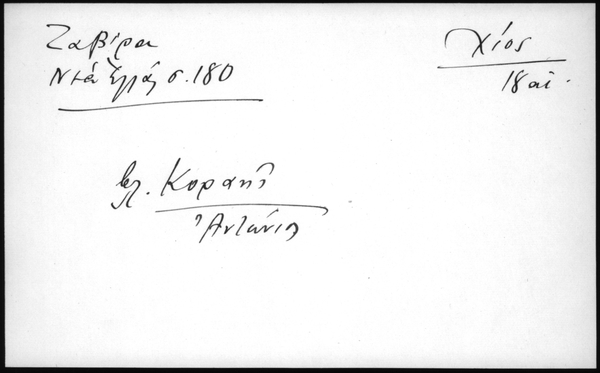 Ζαβίρα
Νέα Ἑλλάς σ. 180
Χίος
18 αἰ.
βλ. Κοραῆς
Ἀντώνιος